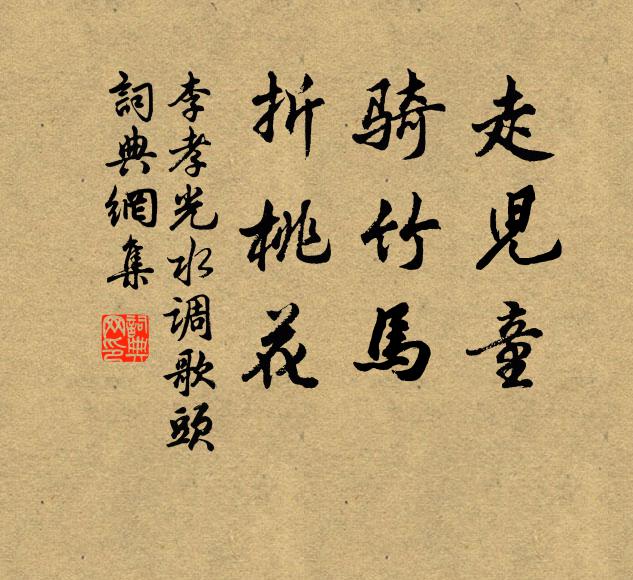 走兒童
騎竹馬
折桃花
李孝光水调歌頭
詞典網集
詞典网印